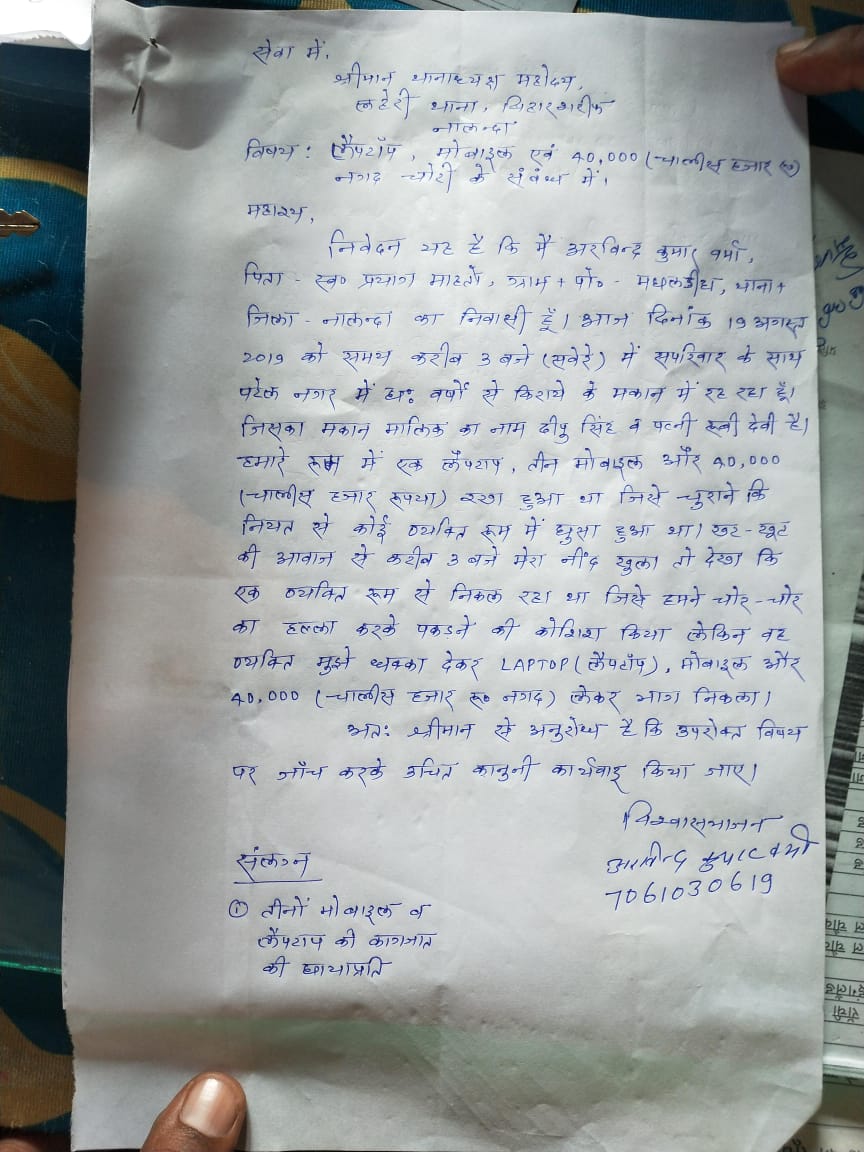 सेवा में,
श्रीमान थानाध्यक्ष महोदय,
लहेरी थाना, बिहारशरीफ
नालन्दा
विषय : लैपटॉप, मोबाइल एवं 40,000 (चालीस हजार रु०)
नगद चोरी के संबंध में।
महाशय,
निवेदन यह है कि मैं अरविन्द कुमार वर्मा,
पिता - स्व० प्रयाग माहतो, ग्राम + पो० - मघलडीह, थाना +
जिला - नालन्दा का निवासी हूँ। आज दिनांक 19 अगस्त
2019 को समय करीब 3 बजे (सवेरे) में सपरिवार के साथ
पटेल नगर में छः वर्षो से किराये के मकान में रह रहा हूँ।
जिसका मकान मालिक का नाम दीपु सिंह व पत्नी रूबी देवी है।
हमारे रूम में एक लैपटाप, तीन मोबाइल और 40,000
(चालीस हजार रूपया) रखा हुआ था जिसे चुराने कि
नियत से कोई व्यक्ति रूम में घुसा हुआ था। खट-खुट
की आवाज से करीब 3 बजे मेरा नींद खुला तो देखा कि
एक व्यक्ति रूम से निकल रहा था जिसे हमने चोर-चोर
का हल्ला करके पकडने की कोशिश किया लेकिन वह
व्यक्ति मुझे धक्का देकर LAPTOP (लैपटॉप), मोबाइल और
40,000 (चालीस हजार रू० नगद) लेकर भाग निकला।
अतः श्रीमान से अनुरोध है कि उपरोक्त विषय
पर जाँच करके उचित कानुनी कार्यवाइ किया जाए।
विश्वासभाजन
अरविन्द कुमार वर्मा
7061030619
संलग्न
① तीनों मोबाइल व
लैपटाप की कागजात
की छायाप्रति